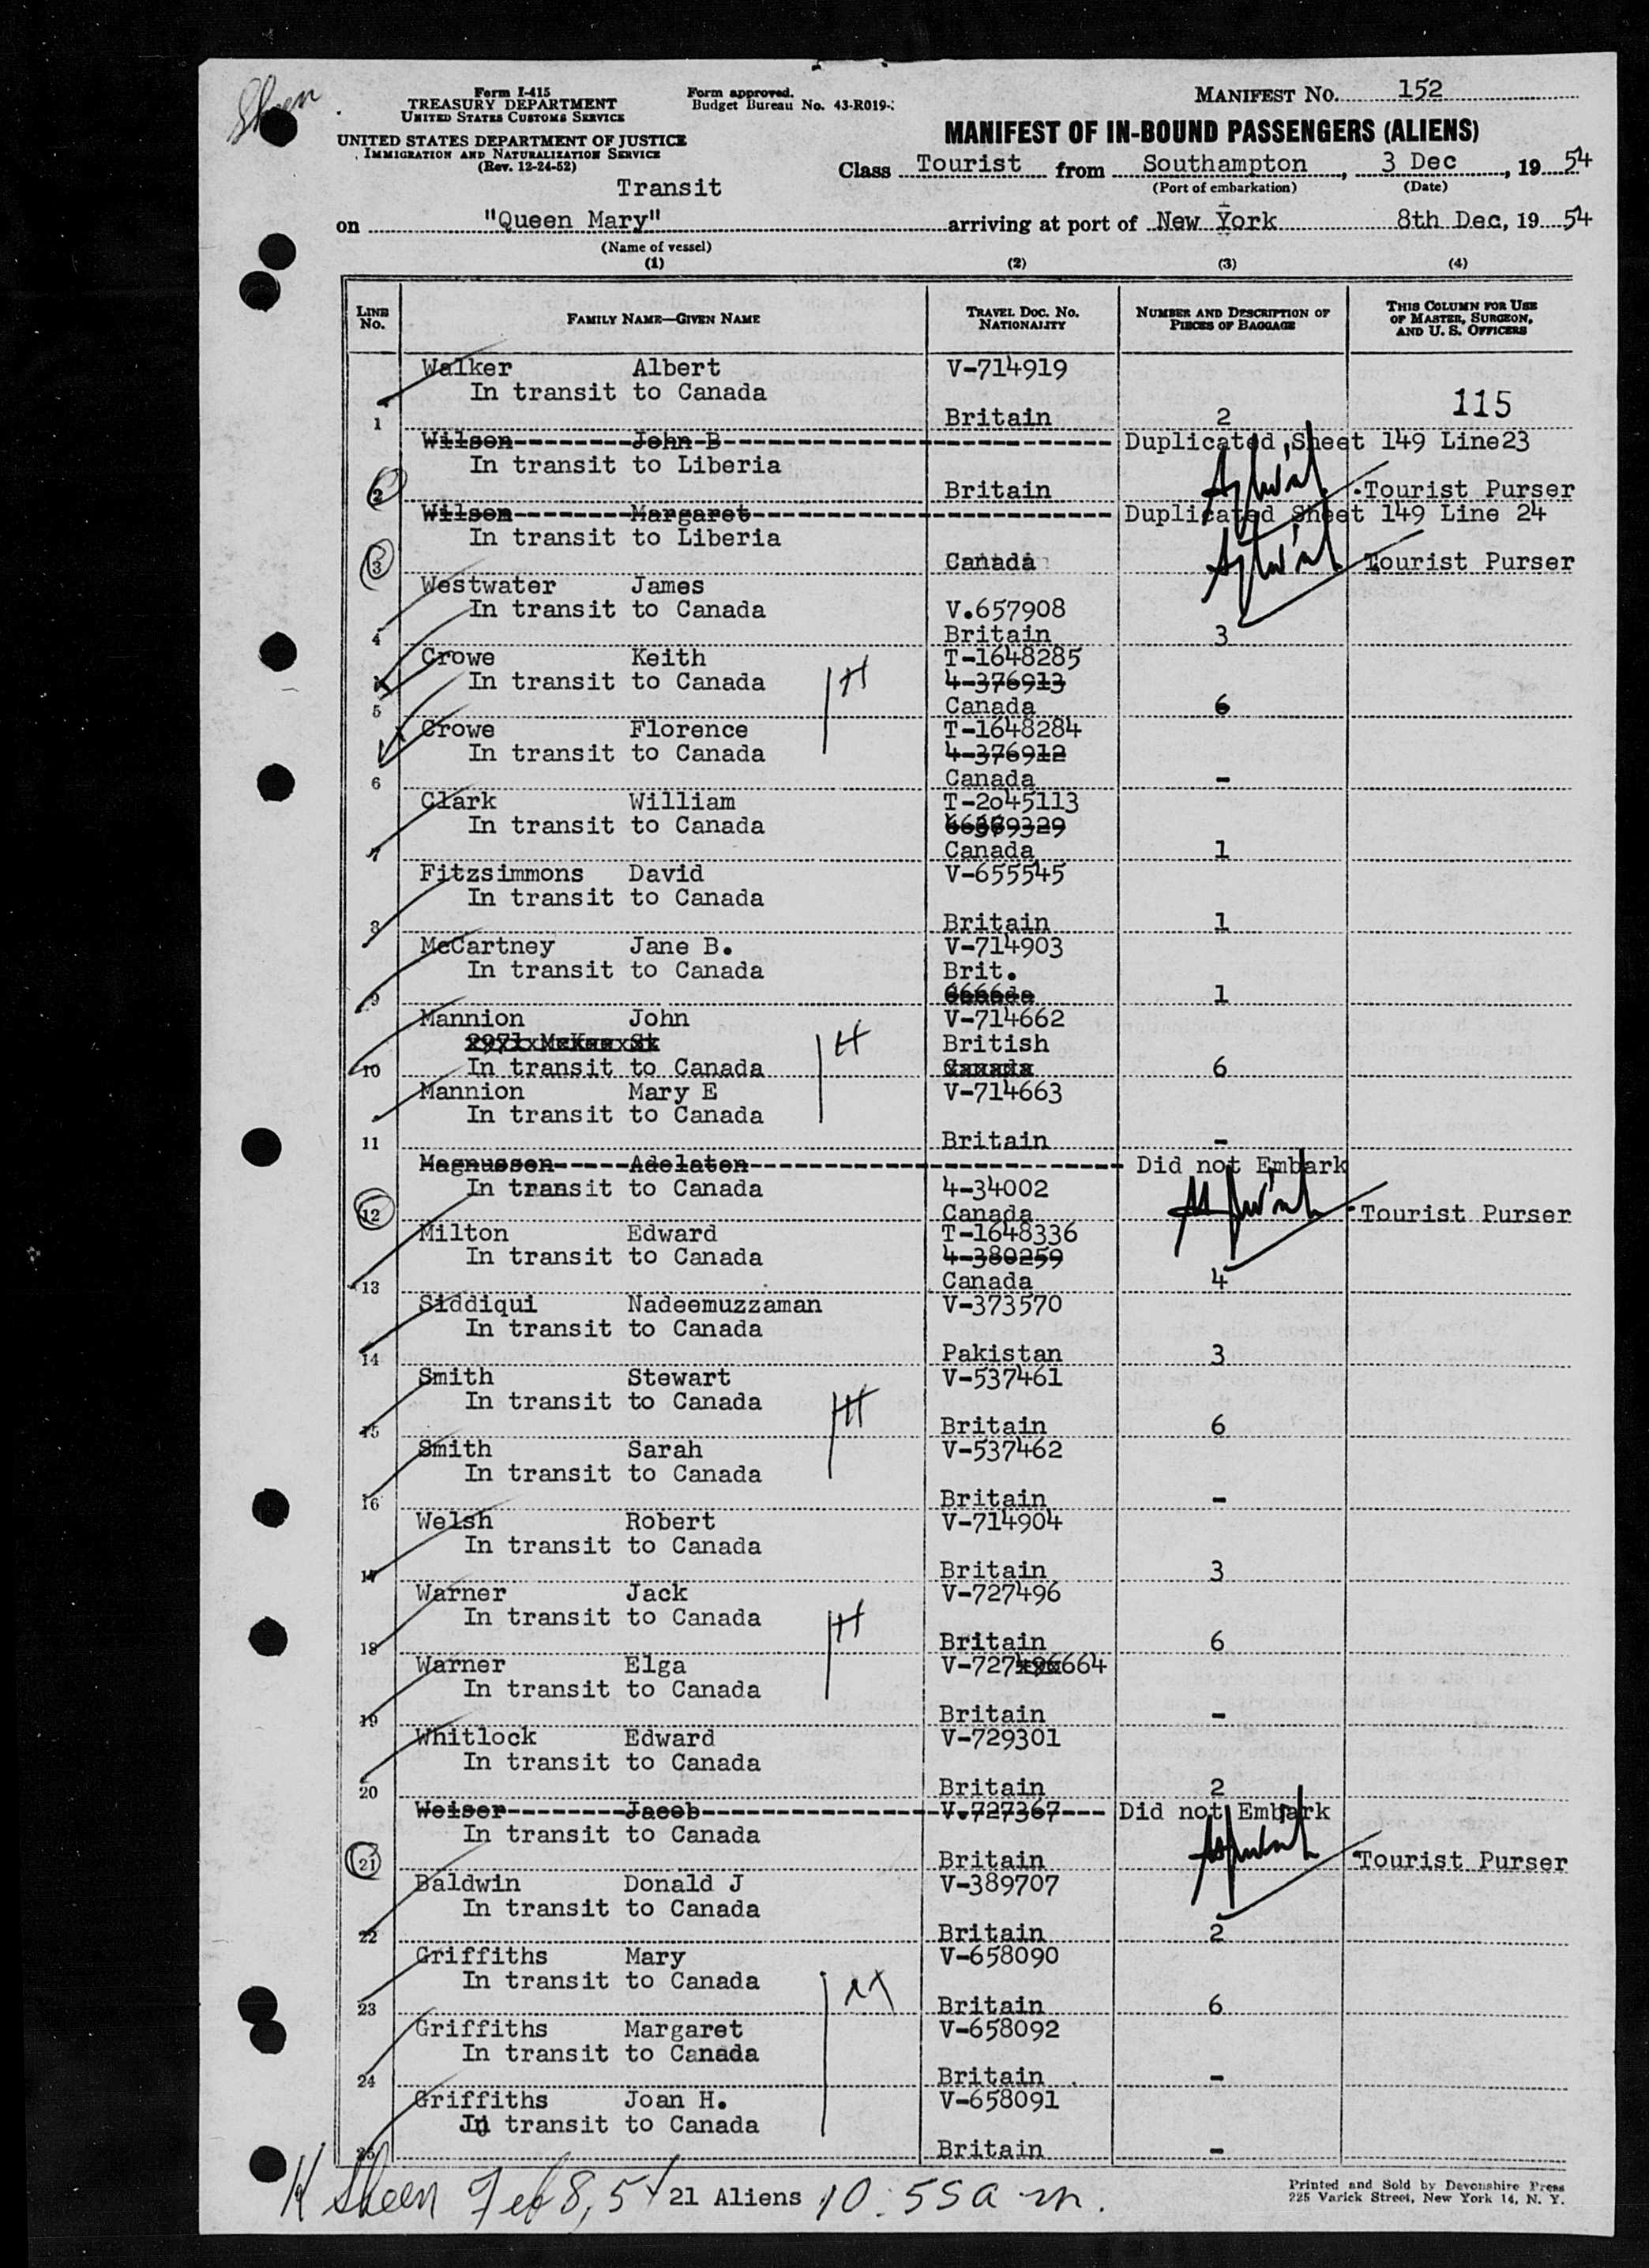 Sheen
Form I-415
TREASURY DEPARTMENT
UNITED STATES CUSTOMS SERVICE
Form approved.
Budget Bureau No. 43-R019-
MANIFEST NO. 152
UNITED STATES DEPARTMENT OF JUSTICE
IMMIGRATION AND NATURALIZATION SERVICE
(Rev. 12-24-52)
MANIFEST OF IN-BOUND PASSENGERS (ALIENS)
Class Tourist from Southampton, 3 Dec, 1954
(Port of embarkation) (Date)
Transit
on "Queen Mary" arriving at port of New York 8th Dec, 1954
(Name of vessel)
(1) (2) (3) (4)
LINE No. FAMILY NAME—GIVEN NAME TRAVEL DOC. NO. NATIONALITY NUMBER AND DESCRIPTION OF PIECES OF BAGGAGE THIS COLUMN FOR USE OF MASTER, SURGEON, AND U. S. OFFICERS
Walker Albert V-714919
In transit to Canada
1 Britain 2 115
Wilson John B Duplicated Sheet 149 Line23
In transit to Liberia
2 Britain Tourist Purser
Wilson Margaret Duplicated Sheet 149 Line 24
In transit to Liberia
3 Canada Tourist Purser
Westwater James
In transit to Canada V.657908
4 Britain 3
Crowe Keith T-1648285
In transit to Canada 4-376913 H
5 Canada 6
Crowe Florence T-1648284
In transit to Canada 4-376912
6 Canada -
Clark William T-2045113
In transit to Canada
7 Canada 1
Fitzsimmons David V-655545
In transit to Canada
8 Britain 1
McCartney Jane B. V-714903
In transit to Canada Brit.
9 Canada 1
Mannion John V-714662
British H
10 In transit to Canada Canada 6
Mannion Mary E V-714663
In transit to Canada
11 Britain -
Magnussen Adelaten Did not Embark
In transit to Canada 4-34002
12 Canada Tourist Purser
Milton Edward T-1648336
In transit to Canada 4-380259
13 Canada 4
Siddiqui Nadeemuzzaman V-373570
In transit to Canada
14 Pakistan 3
Smith Stewart V-537461
In transit to Canada H
15 Britain 6
Smith Sarah V-537462
In transit to Canada
16 Britain -
Welsh Robert V-714904
In transit to Canada
17 Britain 3
Warner Jack V-727496
In transit to Canada H
18 Britain 6
Warner Elga V-727496664
In transit to Canada
19 Britain -
Whitlock Edward V-729301
In transit to Canada
20 Britain 2
Weiser Jacob V.727367 Did not Embark
In transit to Canada
21 Britain Tourist Purser
Baldwin Donald J V-389707
In transit to Canada
22 Britain 2
Griffiths Mary V-658090
In transit to Canada
23 Britain 6
Griffiths Margaret V-658092
In transit to Canada
24 Britain -
Griffiths Joan H. V-658091
In transit to Canada
25 Britain -
K Sheen Feb 8, 54 21 Aliens 10:55 a m.
Printed and Sold by Devonshire Press
225 Varick Street, New York 14, N. Y.